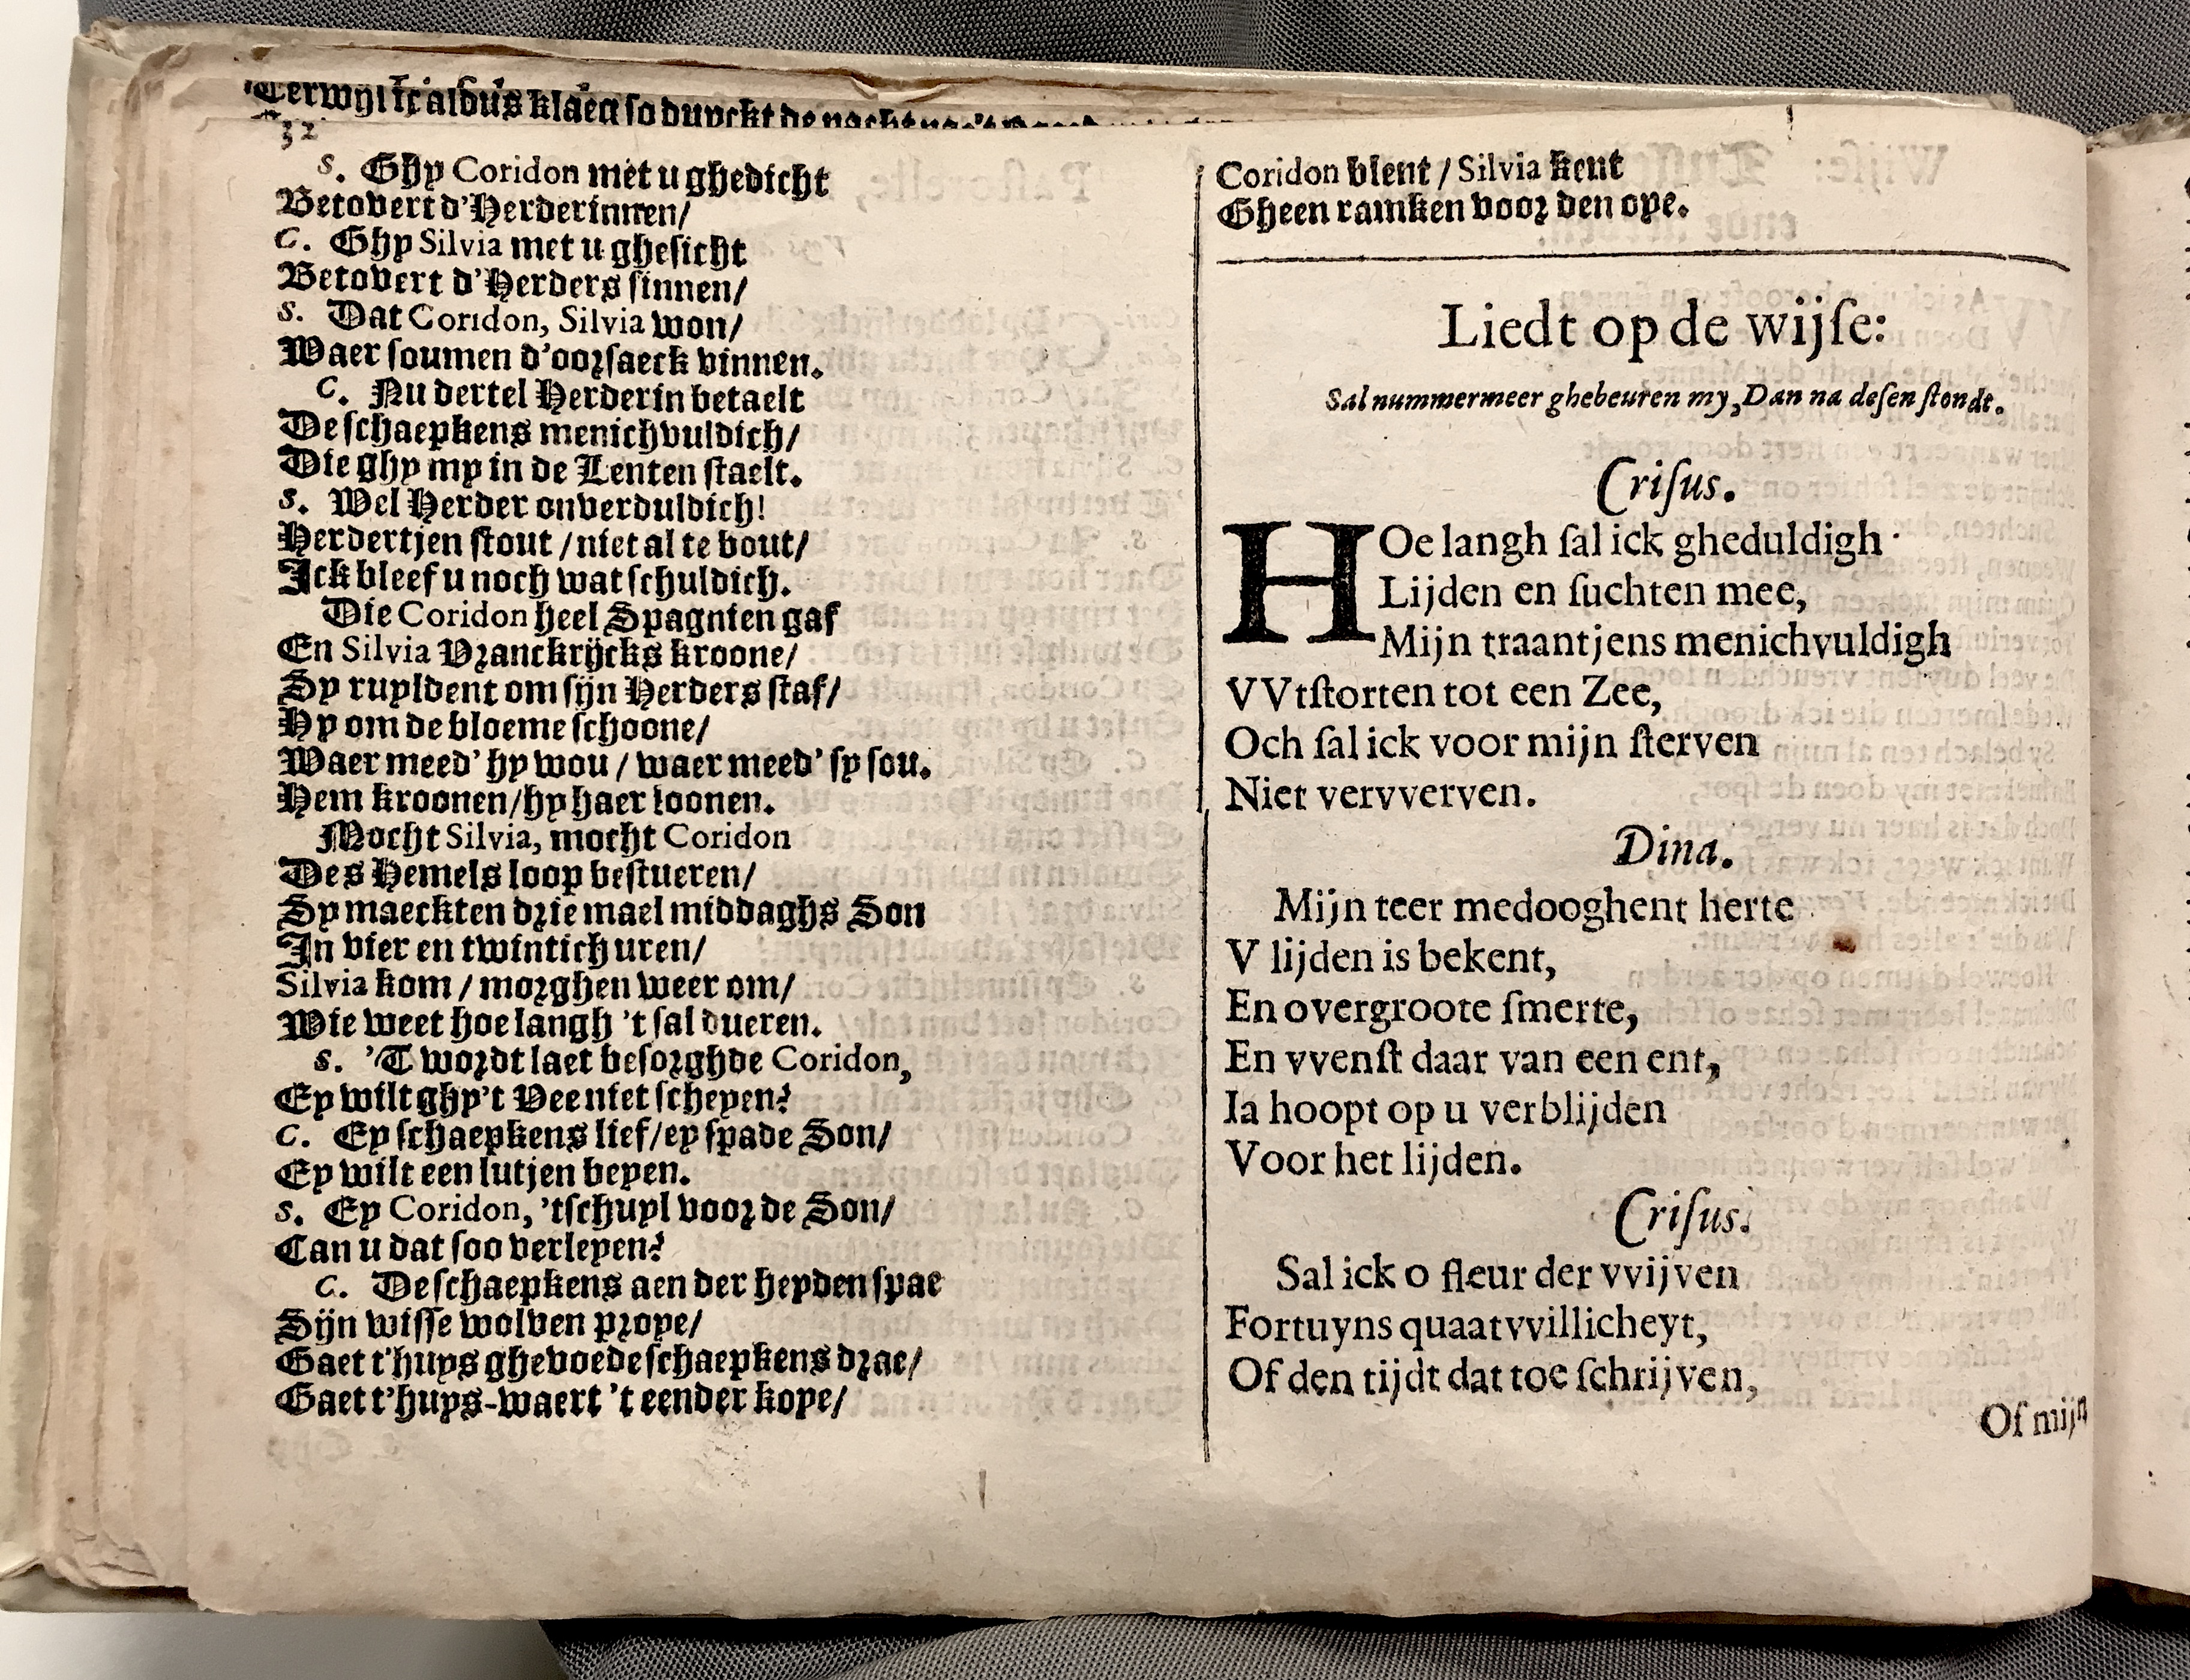 Terwyl ick aldus klaeg so duyckt de nacht
32
S. Ghy Coridon met u ghedicht
Betovert d'Herderinnen/
C. Ghy Silvia met u ghesicht
Betovert d'Herders sinnen/
S. Dat Coridon, Silvia won/
Waer soumen d'oorsaeck vinnen.
C. Nu dertel Herderin betaelt
De schaepkens menichvuldich/
Die ghy my in de Lenten staelt.
S. Wel Herder onverduldich!
Herdertjen stout / niet al te bout/
Ick bleef u noch wat schuldich.
Die Coridon heel Spagnien gaf
En Silvia Vranckrijcks kroone/
Sy ruyldent om sijn Herders staf/
Hy om de bloeme schoone/
Waer meed' hy wou / waer meed' sy sou.
Hem kroonen/hy haer loonen.
Mocht Silvia, mocht Coridon
Des Hemels loop bestueren/
Sy maeckten drie mael middaghs Son
In vier en twintich uren/
Silvia kom / morghen weer om/
Wie weet hoe langh 't sal dueren.
S. 'T wordt laet besorghde Coridon,
Ey wilt ghy't Vee niet schepen?
C. Ey schaepkens lief/ey spade Son/
Ey wilt een lutjen beyen.
S. Ey Coridon, 'tschuyl voor de Son/
Can u dat soo verleyen?
C. De schaepkens aen der heyden spae
Sijn wisse wolven prope/
Gaet t'huys ghevoede schaepkens drae/
Gaet t'huys-waert 't eender kope/
Coridon blent / Silvia kent
Gheen ramken voor den ope.
Liedt op de wijse:
Sal nummermeer ghebeuren my, Dan na desen stondt.
Crisus.
HOe langh sal ick gheduldigh
Lijden en suchten mee,
Mijn traantjens menichvuldigh
VVtstorten tot een Zee,
Och sal ick voor mijn sterven
Niet vervverven.
Dina.
Mijn teer medooghent herte
V lijden is bekent,
En overgroote smerte,
En vvenst daar van een ent,
Ia hoopt op u verblijden
Voor het lijden.
Crisus.
Sal ick o fleur der vvijven
Fortuyns quaatvvillicheyt,
Of den tijdt dat toe schrijven,
Of mijn